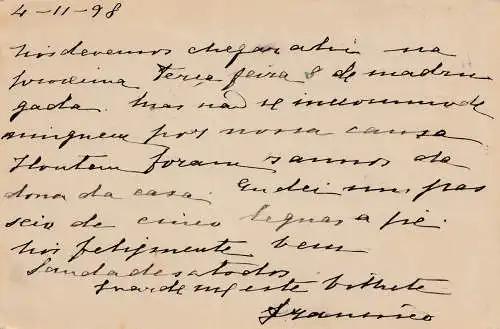 4-11-98
Nós devemos chegar ahi na
proxima Terça feira 8 de madru
gada. Mas não se incommode
ninguem por nossa causa
Hontem foram annos da
dona da casa. Eu dei um pas
seio de cinco leguas a pé.
Nós felizmente bem
Saudades a todos
Guarde-me este bilhete
Francisco